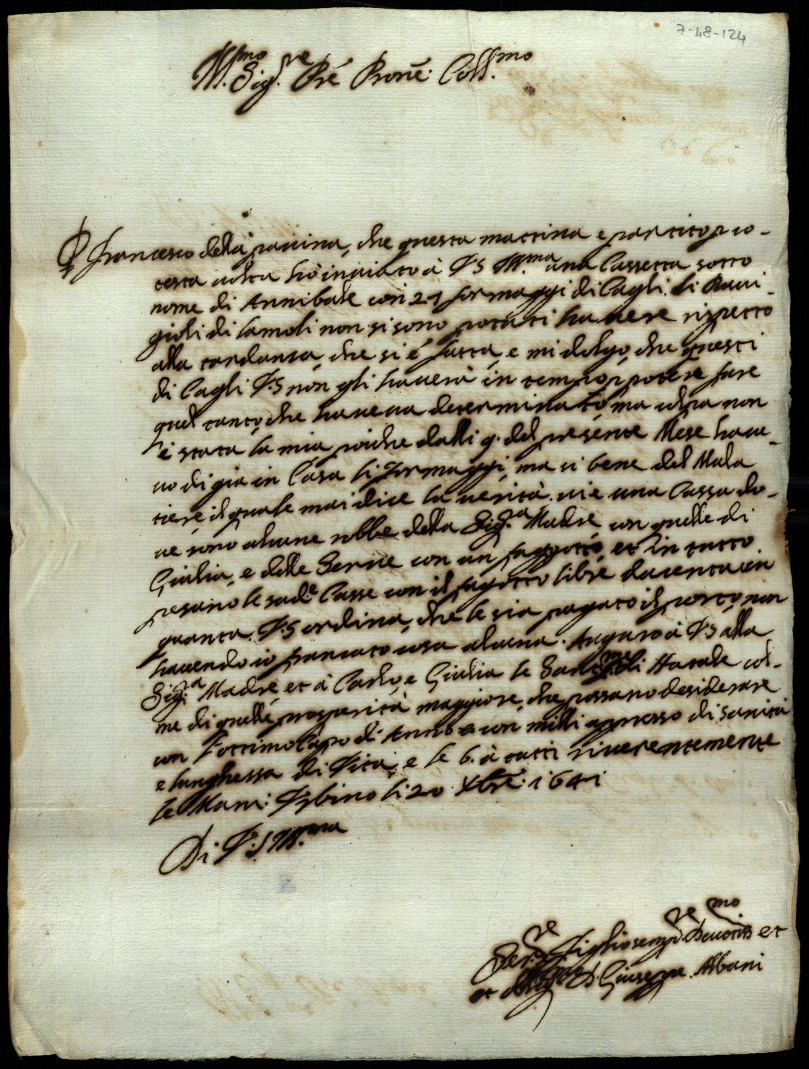 7-48-124
Ill.mo Sig.re Pré Pronẽ: Coll.mo
Francesco della pavina, che questa mattina è partito p co-
testa volta hò inviato à V.S Ill.ma una Cassetta sotto
nome di Annibale con 21 formaggi di Cagli. li Ravi-
gioli di lamoli non si sono potuti havere rispetto
alla tardanza, che si è fatta, e mi dolgo, che questi
di Cagli V.S non gli haverà in tempo p potere fare
quel tanto, che haveva determinato, ma colpa non
è stata la mia poiche dalli 9. del presente Mese have-
vo di già in Casa li formaggi, ma si bene del Mula
tiere, il quale mai dice la verità. vi è una Cassa do-
ve sono alcune robbe della Sig.ra Madre con quelle di
Giulia, e delle Serve con un fagotto, et in tutto
pesano le sad.e Casse con il fagotto libre ducento cin
quanta. V.S ordina, che le sia pagato il porto, non
havendo io francato cosa alcuna. Auguro à V.S alla
Sig.ra Madre et à Carlo, e Giulia le S.me di Natale col-
me di quelle prosperità maggiore, che possano desiderare
con l'ottimo Capo di Anno e con milli appresso di sanità
e lunghezza di Vita, e le b. à tutti riverentemente
le Mani. Vrbino li 20 Xbre. 1641
Di V.S. Ill.ma
Ser.re Figlio Devotiss.mo et
et Giuseppe Albani